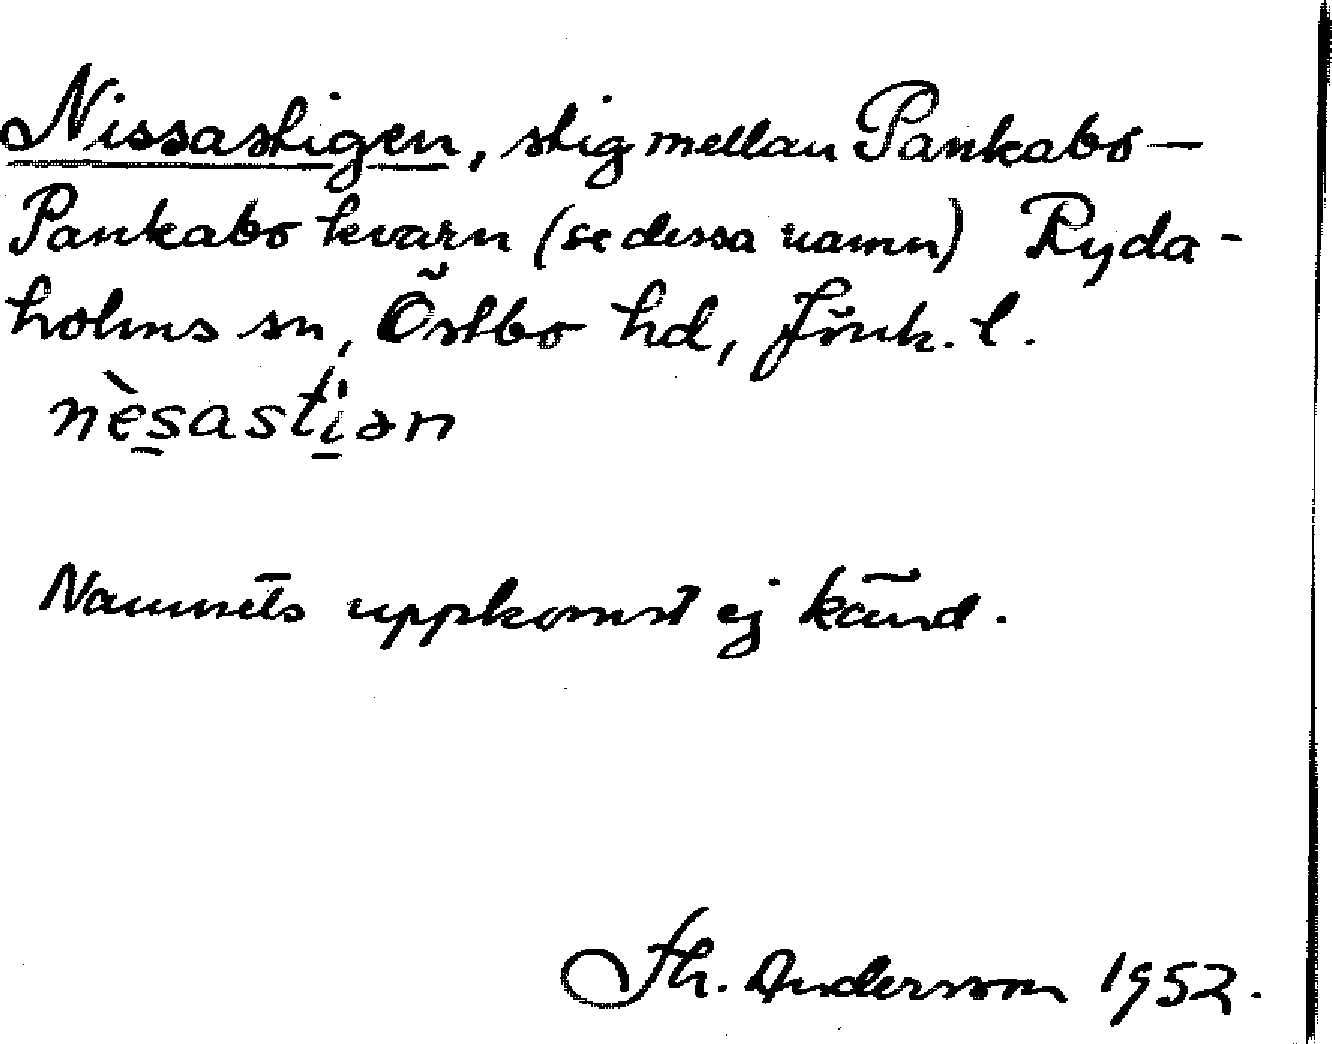 Nissastigen, stig mellan Pankabo—
Pankabo kvarn (se dessa namn) Ryda-
holms sn, Östbo hd, Jönk. l.
nès̲asti̲ən
Namnets uppkomst ej känd.
Th. Andersson 1952.